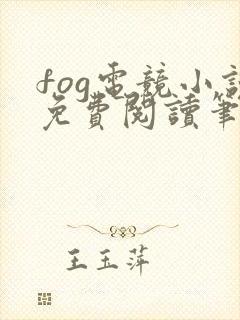 fog電競小說
免費閱讀筆
王玉萍